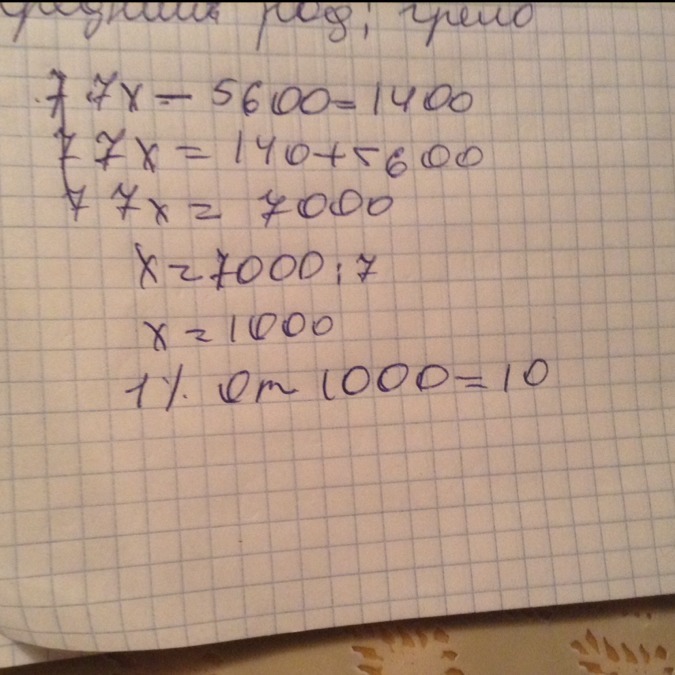 род;
7 7x - 5600 = 1400
7 7x = 140 + 5600
7 7x = 7000
x = 7000 : 7
x = 1000
1% От 1000 = 10